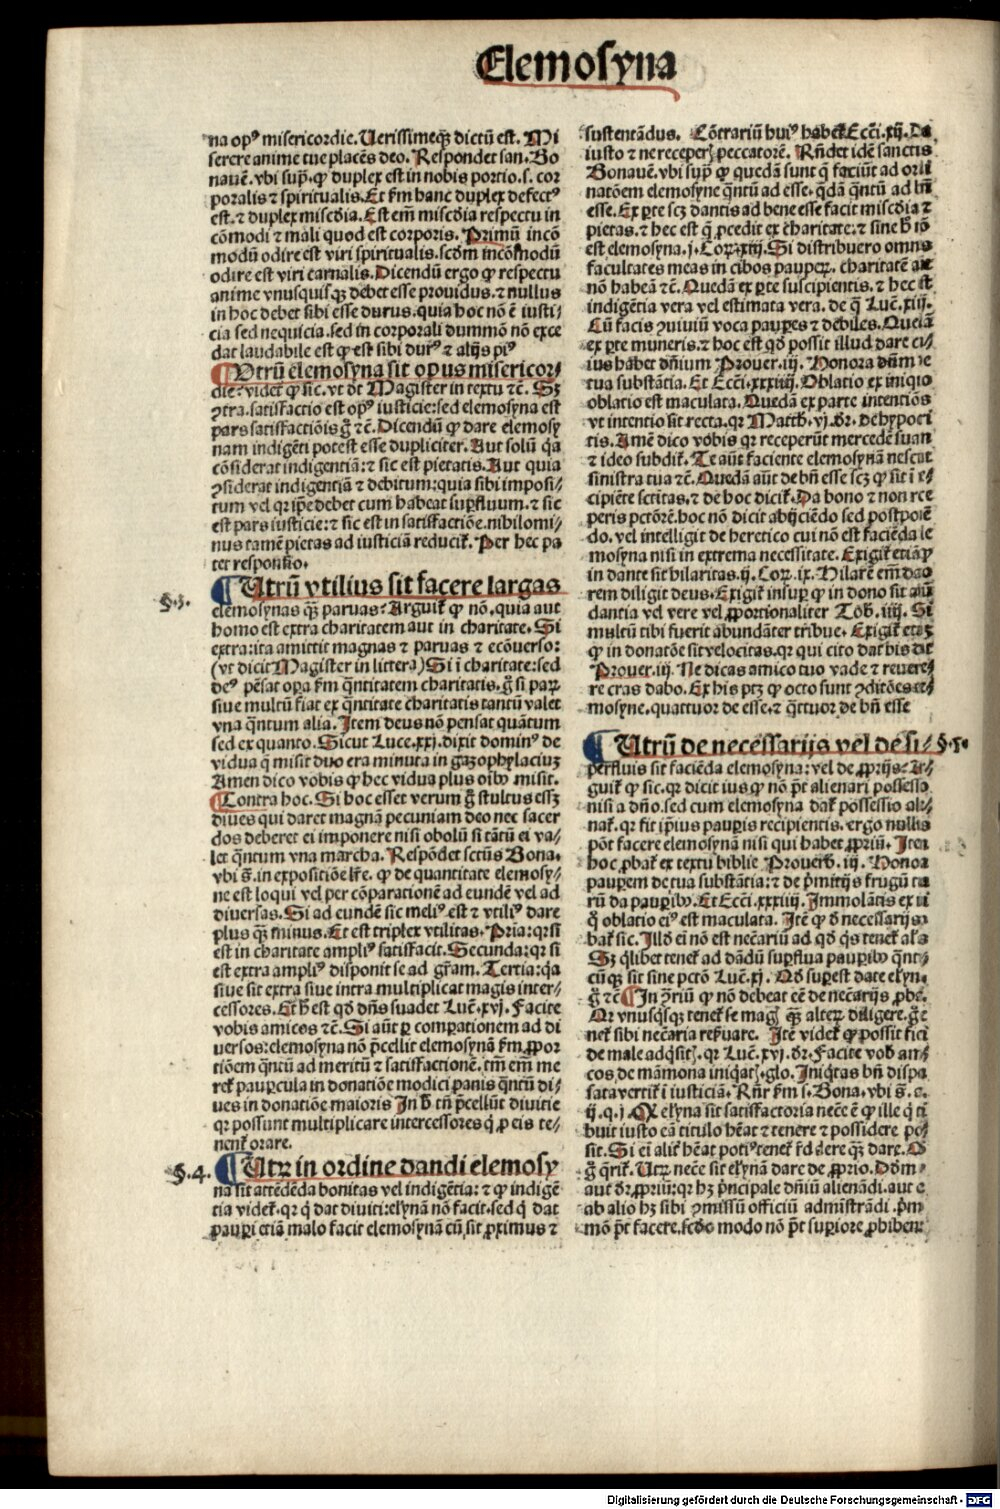 Elemosyna
na opꝰ misericordie. Uerissimeqꝫ dictū est. Mi
serere anime tue placēs deo. Respondet san. Bo
nauē. vbi supͣ. ꝙ duplex est in nobis portio. s. cor
poralis ⁊ spiritualis. Et ẜm hanc duplex defectꝰ
est. ⁊ duplex miscd̄ia. Est em̄ miscd̄ia respectu in
cōmodi ⁊ mali quod est corporis. Primū incō
modū odire est viri spiritualis. scd̄m incōmodū
odire est viri carnalis. Dicendū ergo ꝙ respectu
anime vnusquisqꝫ debet esse prouidus. ⁊ nullus
in hoc debet sibi esse durus. quia hoc nō ē iusti⸗
cia sed nequicia. sed in corporali dummō nō exce
dat laudabile est ꝙ est sibi durꝰ ⁊ alijs piꝰ
¶ Utrū elemosyna sit opus misericor⸗
die: videt̄ ꝙ sic. vt dt̄ Magister in textu ⁊c̄. Sꝫ
ꝯtra. satisfactio est opꝰ iusticie: sed elemosyna est
pars satisfactiōis g̊ ⁊c̄. Dicendū ꝙ dare elemosy
nam indigēti potest esse dupliciter. Aut solū qꝛ
cōsiderat indigentiā: ⁊ sic est pietatis. Aut quia
ꝯsiderat indigentiā ⁊ debitum: quia sibi imposi⸗
tum vel qꝛ ip̄e debet cum habeat suꝑfluum. ⁊ sic
est pars iusticie: ⁊ sic est in satisfactiōe. nihilomi⸗
nus tamē pietas ad iusticiā reducit̄. Per hec pa
tet responsio.
§.3.
¶ Utrū vtilius sit facere largas
elemosynas qꝫ paruas: Arguit̄ ꝙ nō. quia aut
homo est extra charitatem aut in charitate. Si
extra: ita amittit magnas ⁊ paruas ⁊ ecōuerso:
(vt dicit Magister in littera) Si ī charitate: sed
deꝰ pēsat oꝑa ẜm q̄ntitatem charitatis. g̊ si paꝝ
siue multū fiat ex q̄ntitate charitatis tantū valet
vna q̄ntum alia. Item deus nō pensat quātum
sed ex quanto. Sicut Luce. xxj. dixit dominꝰ de
vidua q̄ misit duo era minuta in gazophylaciuꝫ
Amen dico vobis ꝙ hec vidua plus oībꝰ misit.
¶ Contra hoc. Si hoc esset verum g̊ stultus essꝫ
diues qui daret magnā pecuniam deo nec sacer
dos deberet ei imponere nisi obolū si tātū ei va⸗
let q̄ntum vna marcha. Respōdet sctūs Bona.
vbi s̄. in expositiōe lr̄e. ꝙ de quantitate elemosy⸗
ne est loqui vel per cōparationem ad eundē vel ad
diuersas. Si ad eundē sic meliꝰ est ⁊ vtiliꝰ dare
plus qꝫ minus. Et est triplex vtilitas. Pria: qꝛ si
est in charitate ampliꝰ satisfacit. Secunda: qꝛ si
est extra ampliꝰ disponit se ad gr̄am. Tertia: qꝛ
siue sit extra siue intra multiplicat magis inter⸗
cessores. Et h̄ est qd̄ dn̄s suadet Luē. xvj. Facite
vobis amicos ⁊c̄. Si aūt ꝑ comparationem ad di
uersos: elemosyna nō p̄cellit elemosynā ẜm ꝓpor
tiōem q̄ntū ad meritū ⁊ satisfactionē. tm̄ em̄ me
ret̄ paupercula in donatiōe modici panis q̄ntū di⸗
ues in donatiōe maioris In h̄ tn̄ p̄cellūt diuitie
qꝛ possunt multiplicare intercessores q̄ ꝓ eis te⸗
nent̄ orare.
§.4.
¶ Utꝝ in ordine dandi elemosy
na sit attēdēda bonitas vel indigētia: ⁊ ꝙ indigē
tia videt̄. qꝛ q̄ dat diuiti: elynā nō facit. sed q̄ dat
pauꝑi etiā malo facit elemosynā cū sit ꝓximus ⁊
sustentādus. Cōtrariū huiꝰ habet̄ Ecc̄i. xij. Da
iusto ⁊ ne receperꝭ peccatorē. Rn̄det idē sanctꝰ
Bonauē. vbi supͣ ꝙ quedā sunt q̄ faciūt ad ordi
natōem elemosyne q̄ntū ad esse. q̄dā q̄ntū ad bn̄
esse. Ex ꝑte scꝫ dantis ad bene esse facit miscd̄ia ⁊
pietas. ⁊ hec est q̄ ꝓcedit ex charitate: ⁊ sine h̄ nō
est elemosyna. j. Coꝝ. xiij. Si distribuero omnes
facultates meas in cibos pauꝑꝝ. charitatē aūt
nō habeā ⁊c̄. Quedā ex ꝑte suscipientis. ⁊ hec est
indigētia vera vel estimata vera. de q̄ Luē. xiij.
Cū facis ꝯuiuiū voca pauꝑes ⁊ debiles. Quedā
ex ꝑte muneris. ⁊ hoc est qd̄ possit illud dare cu⸗
ius habet dn̄ium Prouer. iij. Honora dn̄m de
tua substātia. Et Ecc̄i. xxxiiij. Oblatio ex iniquo
oblatio est maculata. Quedā ex parte intentiōis
vt intentio sit recta. qꝛ Matth. vj. dr̄. de hypocri
tis. Amē dico vobis qꝛ receperūt mercedē suam
⁊ ideo subdit̄. Te aūt faciente elemosynā nesciat
sinistra tua ⁊c̄. Quedā aūt de bn̄ esse scꝫ ꝙ sit ī re⸗
cipiēte sctitas. ⁊ de hoc dicit̄. Da bono ⁊ non rece
peris pctōrē. hoc nō dicit abijciēdo sed postponē
do. vel intelligit de heretico cui nō est faciēda ele
mosyna nisi in extrema necessitate. Exigit̄ etiā ꝙ
in dante sit hilaritas. ij. Coꝝ. ix. Hilarē em̄ dato
rem diligit deus. Exigit̄ insuꝑ ꝙ in dono sit abū
dantia vel vere vel ꝓportionaliter Tob. iiij. Si
multū tibi fuerit abundāter tribue. Exigit̄ etiā
ꝙ in donatōe sit velocitas. qꝛ qui cito dat bis dat
Prouer. iij. Ne dicas amico tuo vade ⁊ reuerte⸗
re cras dabo. Ex his ptꝫ ꝙ octo sunt ꝯditōes ele⸗
mosyne. quattuor de esse. ⁊ q̄ttuor de bn̄ esse
¶ Utrū de necessarijs vel de su⸗
§.5.
perfluis sit faciēda elemosyna: vel de ꝓprijs: Ar⸗
guit̄ ꝙ sic. qꝛ dicit ius ꝙ nō pōt alienari possessio
nisi a dn̄o. sed cum elemosyna dat̄ possessio alie⸗
nat̄. qꝛ fit ip̄ius pauꝑis recipientis. ergo nullus
pōt facere elemosynā nisi qui habet ꝓpriū. Item
hoc ꝓbat̄ ex textu biblie Prouerb. iij. Honora
pauꝑem de tua substātia: ⁊ de p̄mitijs frugū tua
rū da pauꝑibꝰ. Et Ecc̄i. xxxiiij. Immolātis ex ini
q̊ oblatio eiꝰ est maculata. Itē ꝙ d̄ necessarijs p
bat̄ sic. Illd̄ ei nō est nec̄ariū ad qd̄ q̄s tenet̄ alia
Sꝫ q̄libet tenet̄ ad dādū suꝑflua pauꝑibꝰ q̄nt⸗
cūqꝫ sit sine pctō Luē. xj. Qd̄ suꝑest date elyn.
g̊ ⁊c̄ ¶ In ꝯriū ꝙ nō debeat eē de nec̄arijs ꝓbat̄.
Qꝛ vnusqͥsqꝫ tenet̄ se magꝭ qꝫ alteꝝ diligere. g̊ te
net̄ sibi nec̄aria reẜuare. Itē videt̄ ꝙ possit fieri
de male adqͥsitꝭ. qꝛ Luē. xvj. dr̄. Facite vob̄ ami⸗
cos de māmōna iniqͥtatꝭ. glo. Iniqͥtas bn̄ dispē
sata vertit̄ ī iusticiā. Rn̄r ẜm s. Bona. vbi s̄. a.
ij. q. j. Qꝛ elyna sit satisfactoria nec̄e ē ꝙ ille q̄ tri
buit iusto eā titulo hēat ⁊ tenere ⁊ possidere pos
sit. Si ei alit̄ hēat potiꝰ tenet̄ rd̄dere qꝫ dare.
g̊ qrit̄. Utꝝ nec̄e sit elynā dare de ꝓprio. Dd̄m
aut dr̄. ꝓpriū: qꝛ hꝫ p̄ncipale dn̄iū alienādi. aut q
ab alio hꝫ sibi ꝯmissū officiū admīstrādi. p̄mo
mō pōt facere. scd̄o modo nō pōt suꝑiore ꝓhibente